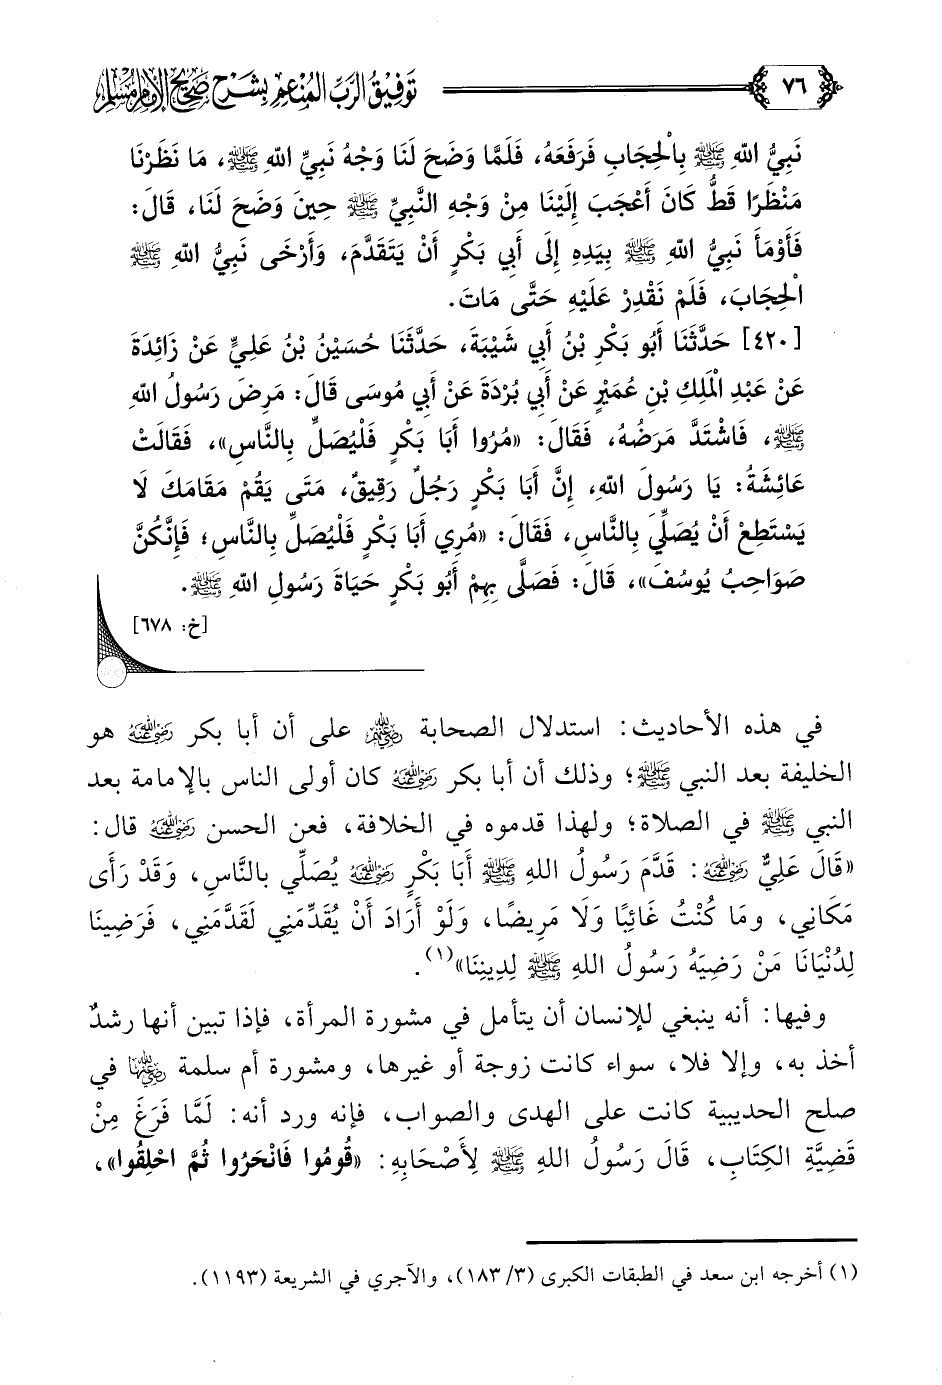 ٧٦
توفيق الرب المنعم بشرح صحيح الإمام مسلم
نَبِيُّ اللهِ ﷺ بِالْحِجَابِ فَرَفَعَهُ، فَلَمَّا وَضَحَ لَنَا وَجْهُ نَبِيِّ اللهِ ﷺ، مَا نَظَرْنَا
مَنْظَرًا قَطُّ كَانَ أَعْجَبَ إِلَيْنَا مِنْ وَجْهِ النَّبِيِّ ﷺ حِينَ وَضَحَ لَنَا، قَالَ:
فَأَوْمَأَ نَبِيُّ اللهِ ﷺ بِيَدِهِ إِلَى أَبِي بَكْرٍ أَنْ يَتَقَدَّمَ، وَأَرْخَى نَبِيُّ اللهِ ﷺ
الْحِجَابَ، فَلَمْ نَقْدِرْ عَلَيْهِ حَتَّى مَاتَ.
[٤٢٠] حَدَّثَنَا أَبُو بَكْرِ بْنُ أَبِي شَيْبَةَ، حَدَّثَنَا حُسَيْنُ بْنُ عَلِيٍّ عَنْ زَائِدَةَ
عَنْ عَبْدِ الْمَلِكِ بْنِ عُمَيْرٍ عَنْ أَبِي بُرْدَةَ عَنْ أَبِي مُوسَى قَالَ: مَرِضَ رَسُولُ اللهِ
ﷺ، فَاشْتَدَّ مَرَضُهُ، فَقَالَ: «مُرُوا أَبَا بَكْرٍ فَلْيُصَلِّ بِالنَّاسِ»، فَقَالَتْ
عَائِشَةُ: يَا رَسُولَ اللهِ، إِنَّ أَبَا بَكْرٍ رَجُلٌ رَقِيقٌ، مَتَى يَقُمْ مَقَامَكَ لَا
يَسْتَطِعْ أَنْ يُصَلِّيَ بِالنَّاسِ، فَقَالَ: «مُرِي أَبَا بَكْرٍ فَلْيُصَلِّ بِالنَّاسِ؛ فَإِنَّكُنَّ
صَوَاحِبُ يُوسُفَ»، قَالَ: فَصَلَّى بِهِمْ أَبُو بَكْرٍ حَيَاةَ رَسُولِ اللهِ ﷺ.
[خ: ٦٧٨]
في هذه الأحاديث: استدلال الصحابة رضي الله عنهم على أن أبا بكر رضي الله عنه هو
الخليفة بعد النبي ﷺ؛ وذلك أن أبا بكر رضي الله عنه كان أولى الناس بالإمامة بعد
النبي ﷺ في الصلاة؛ ولهذا قدموه في الخلافة، فعن الحسن رضي الله عنه قال:
«قَالَ عَلِيٌّ رضي الله عنه: قَدَّمَ رَسُولُ اللهِ ﷺ أَبَا بَكْرٍ رضي الله عنه يُصَلِّي بِالنَّاسِ، وَقَدْ رَأَى
مَكَانِي، وَمَا كُنْتُ غَائِبًا وَلَا مَرِيضًا، وَلَوْ أَرَادَ أَنْ يُقَدِّمَنِي لَقَدَّمَنِي، فَرَضِينَا
لِدُنْيَانَا مَنْ رَضِيَهُ رَسُولُ اللهِ ﷺ لِدِينِنَا»(١).
وفيها: أنه ينبغي للإنسان أن يتأمل في مشورة المرأة، فإذا تبين أنها رشدٌ
أخذ به، وإلا فلا، سواء كانت زوجة أو غيرها، ومشورة أم سلمة رضي الله عنها في
صلح الحديبية كانت على الهدى والصواب، فإنه ورد أنه: لَمَّا فَرَغَ مِنْ
قَضِيَّةِ الكِتَابِ، قَالَ رَسُولُ اللهِ ﷺ لِأَصْحَابِهِ: «قُومُوا فَانْحَرُوا ثُمَّ احْلِقُوا»،
(١) أخرجه ابن سعد في الطبقات الكبرى (٣/ ١٨٣)، والآجري في الشريعة (١١٩٣).